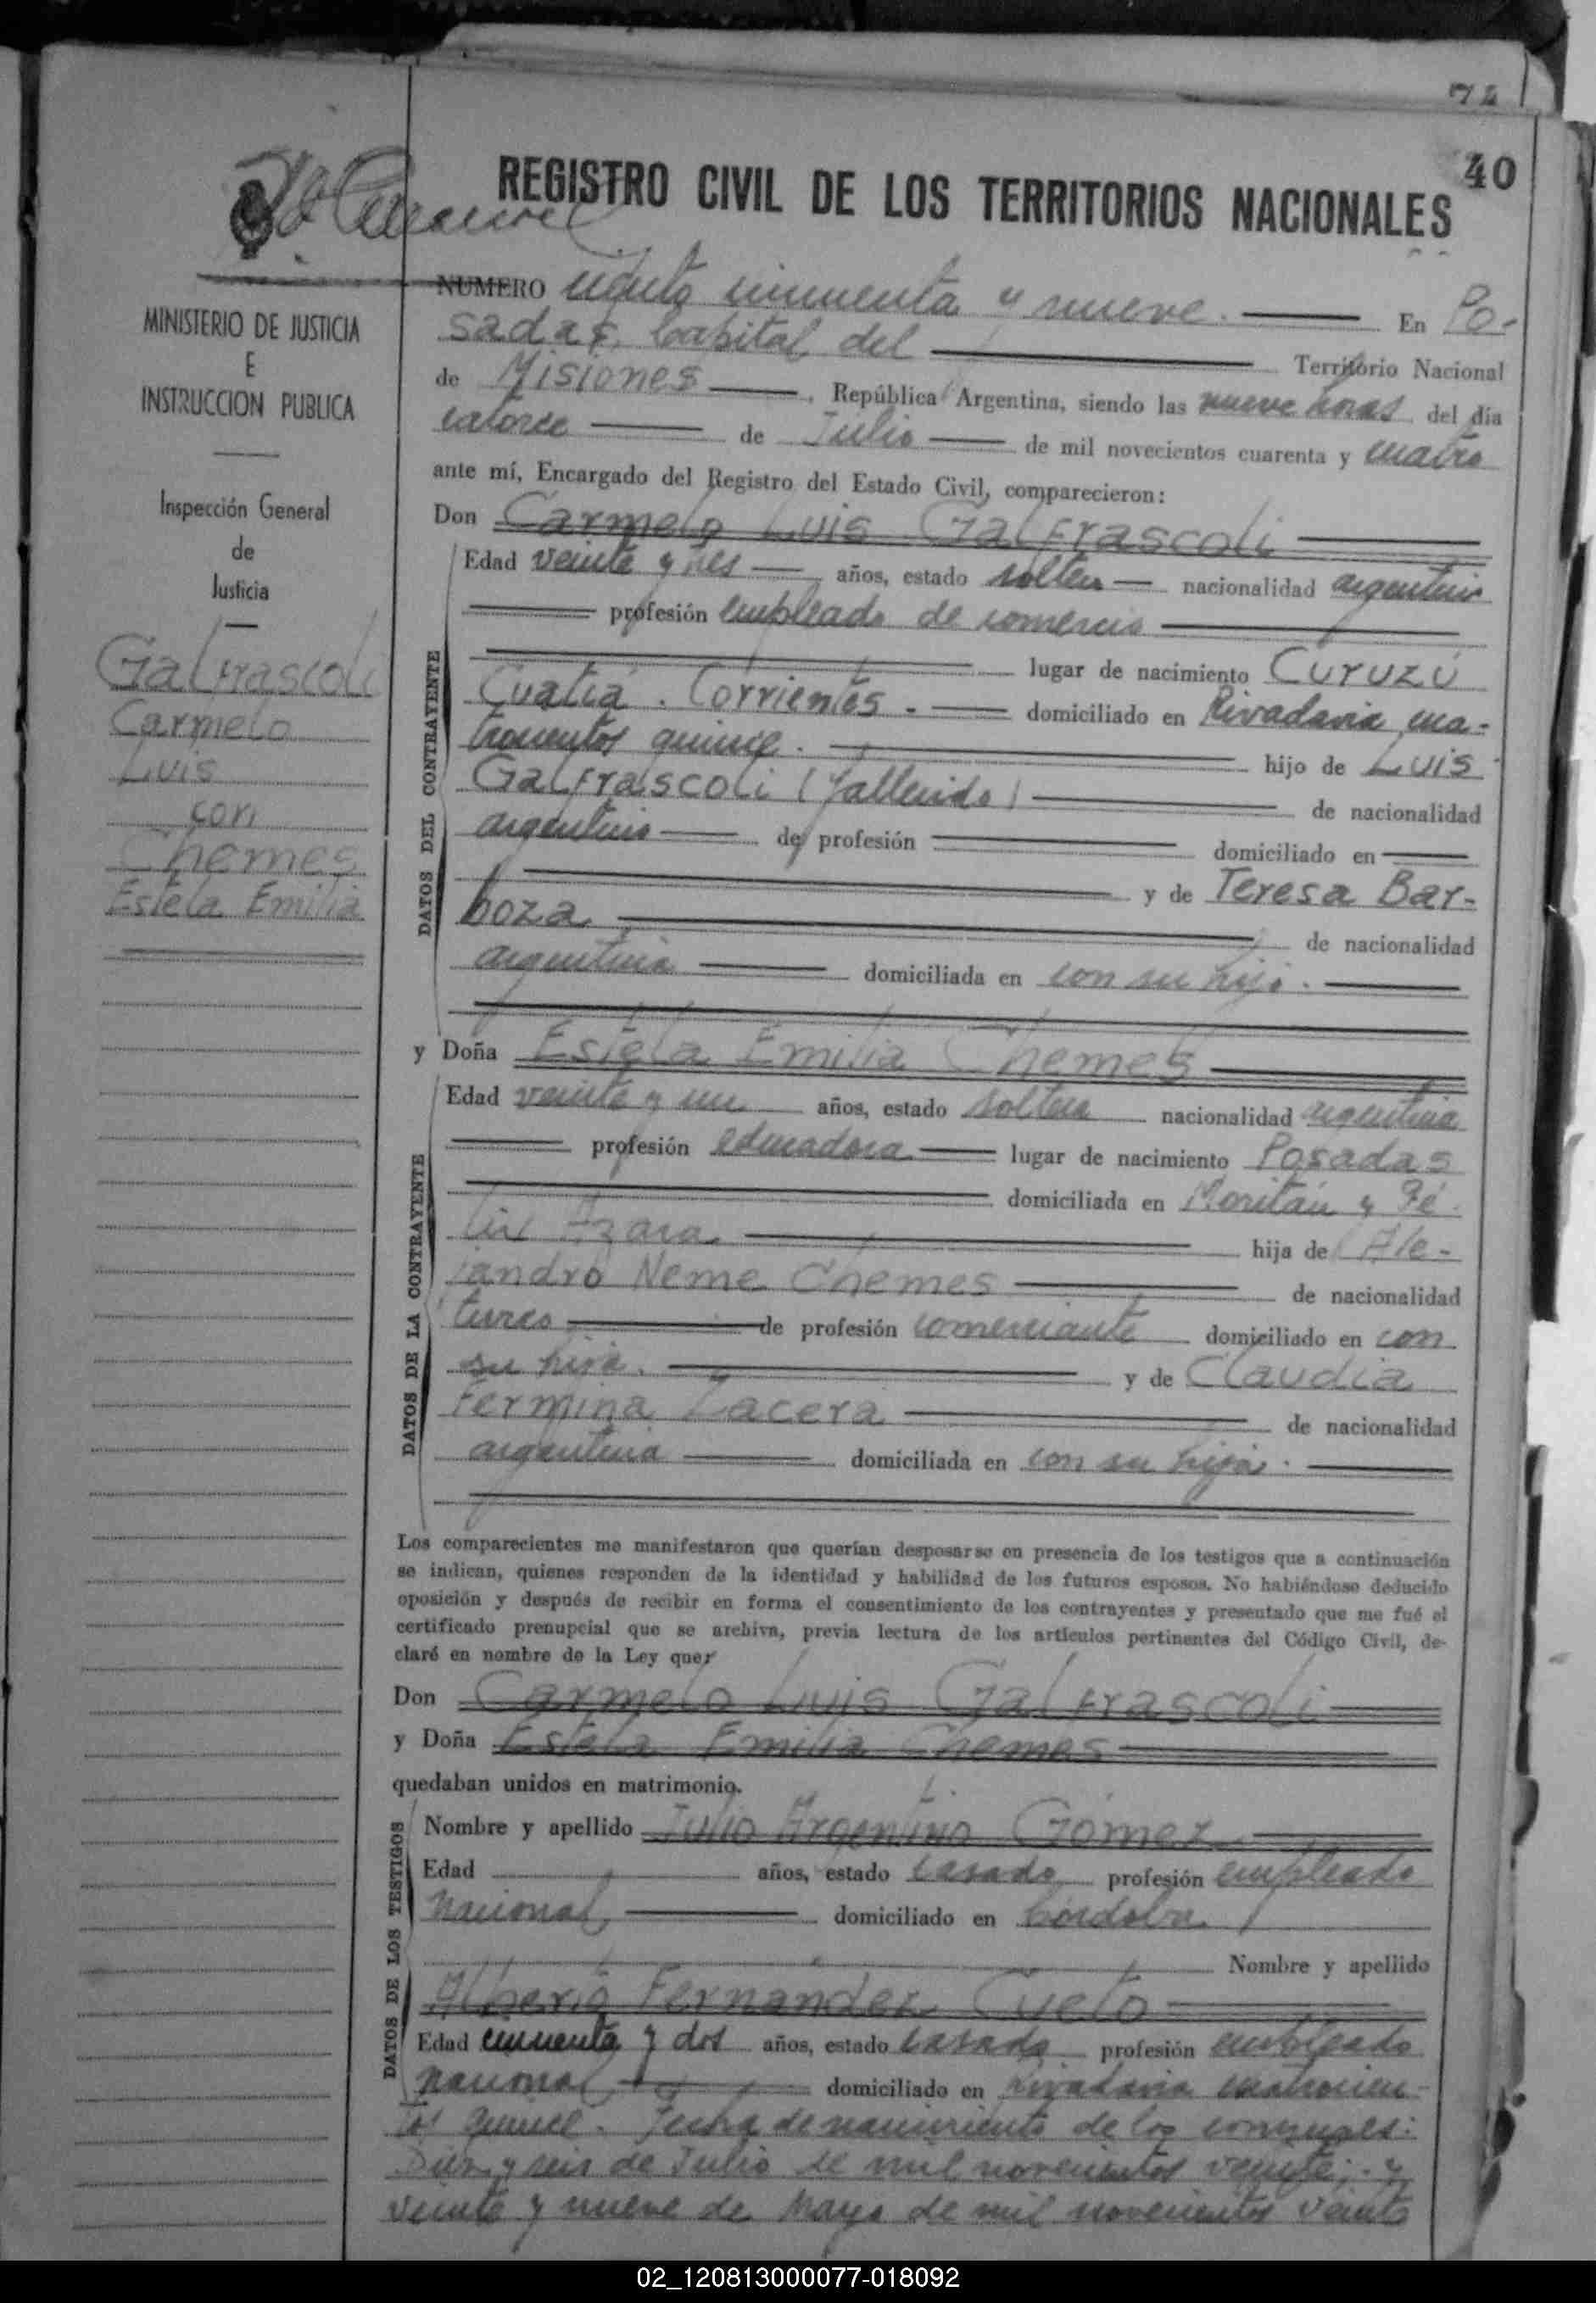 40
REGISTRO CIVIL DE LOS TERRITORIOS NACIONALES
MINISTERIO DE JUSTICIA
E
INSTRUCCION PUBLICA
Inspección General
de
Justicia
Galfrascoli
Carmelo
Luis
con
Chemes
Estela Emilia
NUMERO ciento cincuenta y nueve. En Po-
sadas, Capital del Territorio Nacional
de Misiones, República Argentina, siendo las nueve horas del día
catorce de Julio de mil novecientos cuarenta y cuatro
ante mí, Encargado del Registro del Estado Civil, comparecieron:
Don Carmelo Luis Galfrascoli
DATOS DEL CONTRAYENTE
Edad veinte y tres años, estado soltero nacionalidad argentino
profesión empleado de comercio
lugar de nacimiento Curuzú
Cuatiá. Corrientes. domiciliado en Rivadavia cua-
trocientos quince. hijo de Luis
Galfrascoli (fallecido) de nacionalidad
argentino de profesión domiciliado en
y de Teresa Bar-
boza de nacionalidad
argentina domiciliada en con su hijo.
y Doña Estela Emilia Chemes
DATOS DE LA CONTRAYENTE
Edad veinte y un años, estado soltera nacionalidad argentina
profesión educadora lugar de nacimiento Posadas
domiciliada en y Fé-
lix Azara hija de Ale-
jandro Neme Chemes de nacionalidad
turco de profesión comerciante domiciliado en con
su hija. y de Claudia
Fermina Lacera de nacionalidad
argentina domiciliada en con su hija.
Los comparecientes me manifestaron que querían desposarse en presencia de los testigos que a continuación
se indican, quienes responden de la identidad y habilidad de los futuros esposos. No habiéndose deducido
oposición y después de recibir en forma el consentimiento de los contrayentes y presentado que me fué el
certificado prenupcial que se archiva, previa lectura de los artículos pertinentes del Código Civil, de-
claré en nombre de la Ley que:
Don Carmelo Luis Galfrascoli
y Doña Estela Emilia Chemes
quedaban unidos en matrimonio.
DATOS DE LOS TESTIGOS
Nombre y apellido Julio Argentino Gómez
Edad años, estado casado profesión empleado
nacional domiciliado en Córdoba
Nombre y apellido
Alberto Fernández Cueto
Edad cincuenta y dos años, estado casado profesión empleado
nacional domiciliado en Rivadavia cuatrocien-
tos quince. Fecha de nacimiento de los conyuges:
Diez y seis de Julio de mil novecientos veinte; y
veinte y nueve de Mayo de mil novecientos veinte
02_120813000077-018092